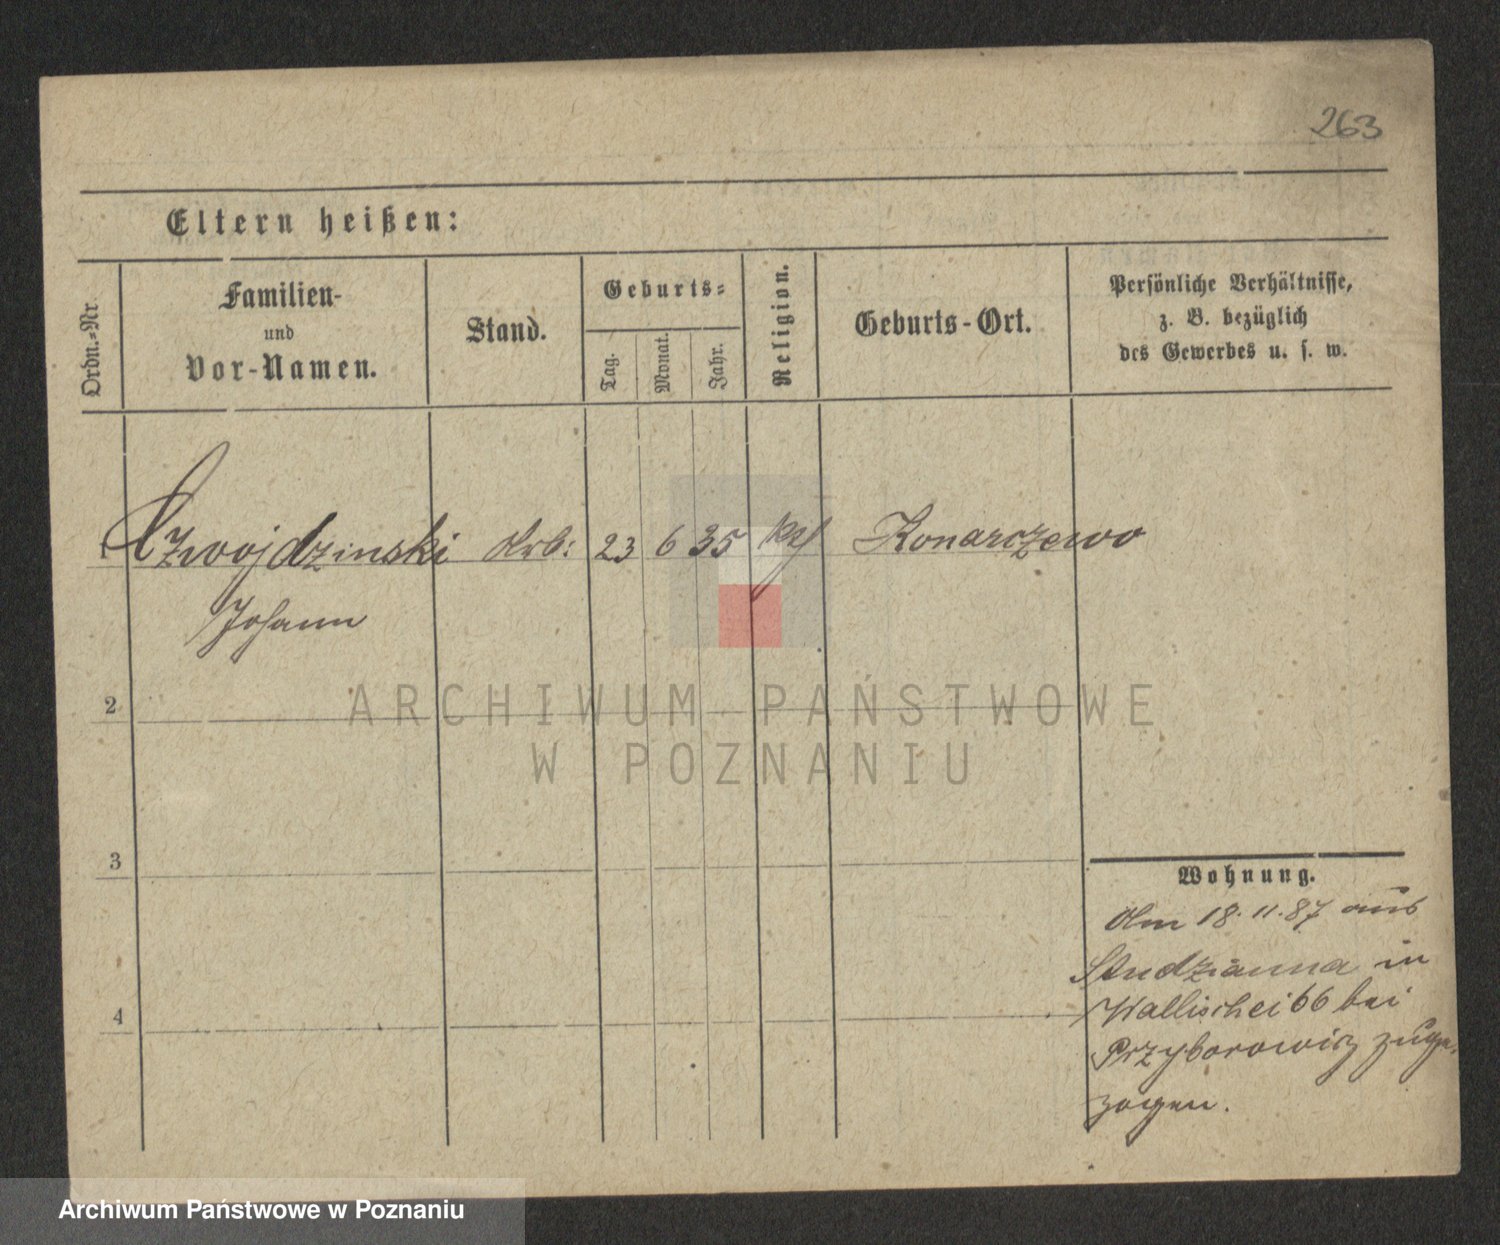 263
Eltern heißen:
Ordn.-Nr.
Familien-
und
Vor-Namen.
Stand.
Geburts-
Tag.
Monat.
Jahr.
Religion.
Geburts-Ort.
Persönliche Verhältnisse,
z. B. bezüglich
des Gewerbes u. s. w.
Czwojdzinski Arb: 23 6 35 Konarczewo
Johann
2
3
4
Wohnung.
Am 18.11.87 aus
Studzianna in
Wallischei 66 bei
Przyborowicz zuge-
zogen.
ARCHIWUM PAŃSTWOWE
W POZNANIU
Archiwum Państwowe w Poznaniu